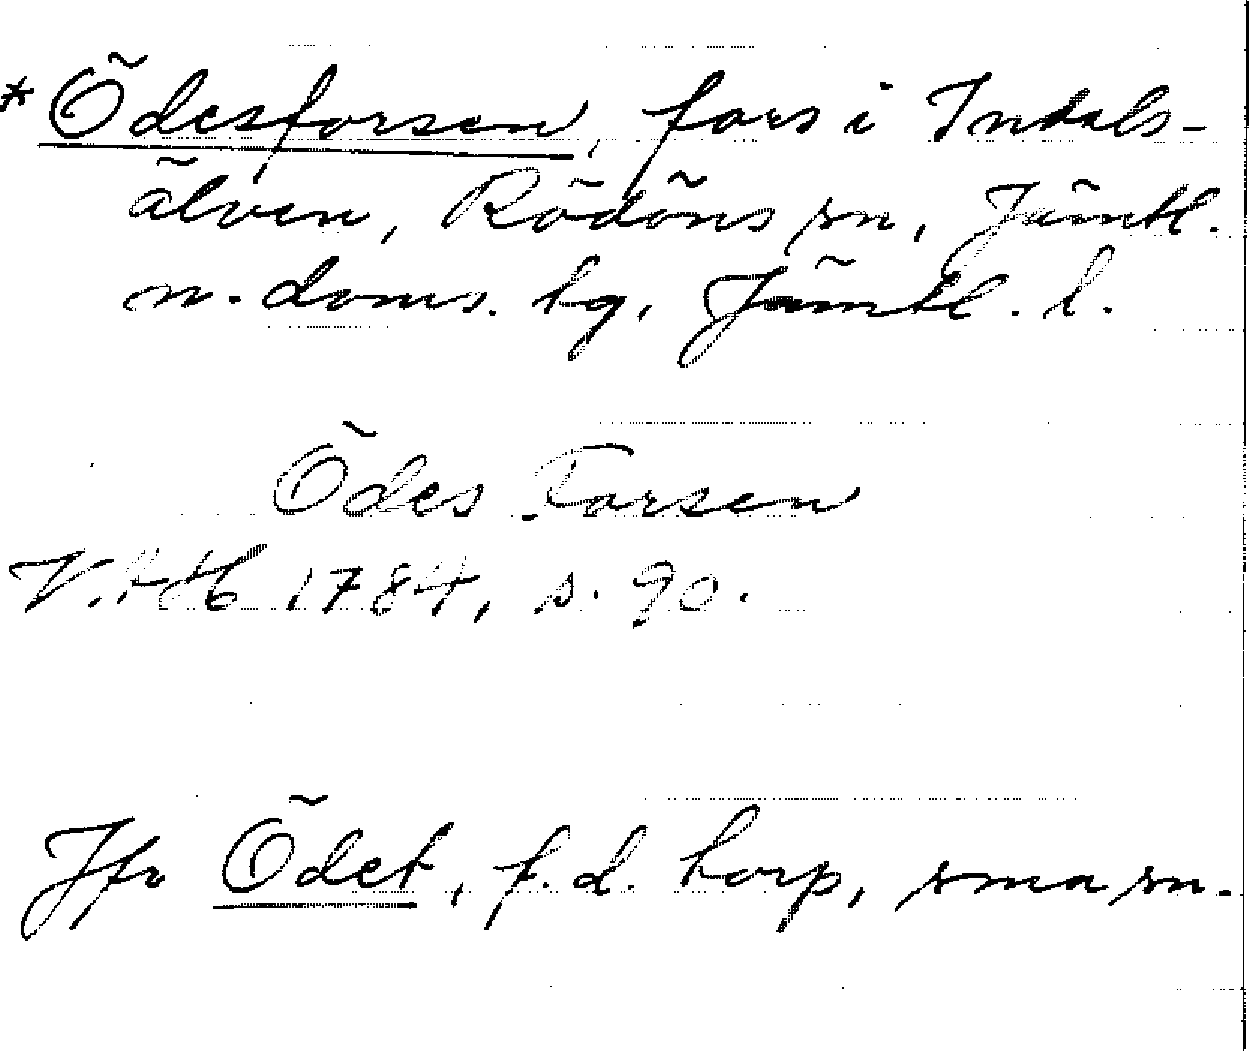 *Ödesforsen, fors i Indals-
älven, Rödöns sn, Jämtl.
n. doms. tg, Jämtl. l.
Ödes Forsen
VAH 1784, s. 90.
Jfr Ödet, f.d. torp, sma sn.